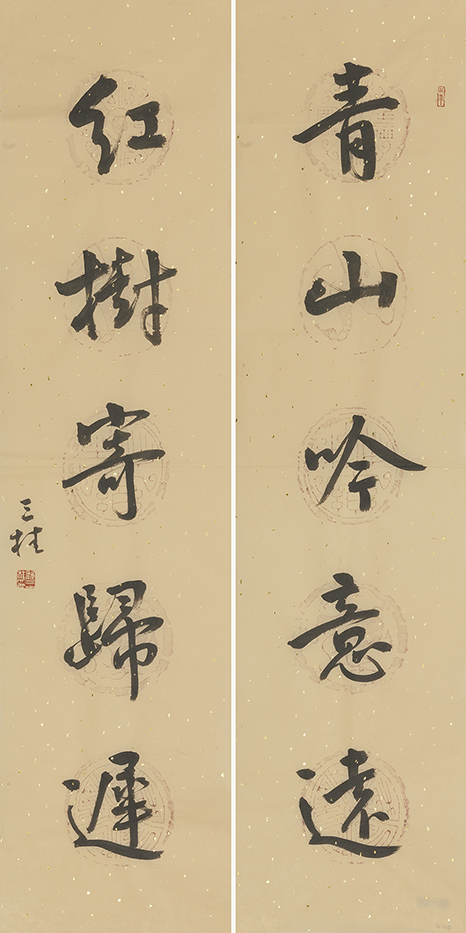 青山吟意遠
紅樹寄歸遲
三桂